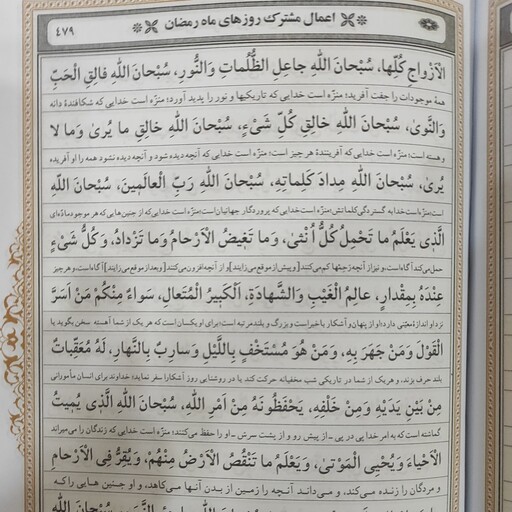 ۴۷۹ اعمال مشترک روزهای ماه رمضان
الْاَزْواجِ كُلِّها، سُبْحانَ اللّٰهِ جاعِلِ الظُّلُماتِ وَالنُّورِ، سُبْحانَ اللّٰهِ فالِقِ الْحَبِّ
همهٔ موجودات را جفت آفرید؛ منزّه است خدایی که تاریکیها و نور را پدید آورد؛ منزّه است خدایی که شکافندهٔ دانه
وَالنَّوىٰ، سُبْحانَ اللّٰهِ خالِقِ كُلِّ شَىْءٍ، سُبْحانَ اللّٰهِ خالِقِ ما يُرىٰ وَما لا
و هسته است؛ منزّه است خدایی که آفرینندهٔ هر چیز است؛ منزّه است خدایی که آنچه دیده شود و آنچه دیده نشود همه را او آفریده
يُرىٰ، سُبْحانَ اللّٰهِ مِدادَ كَلِماتِهِ، سُبْحانَ اللّٰهِ رَبِّ الْعالَمينَ، سُبْحانَ اللّٰهِ
است؛ منزّه است خدا به گستردگی کلماتش؛ منزّه است خدایی که پروردگار جهانیان است؛ منزّه است خدایی که از جنین‌هایی که هر موجود ماده‌ای
الَّذى يَعْلَمُ ما تَحْمِلُ كُلُّ اُنْثىٰ، وَما تَغيضُ الْاَرْحامُ وَما تَزْدادُ، وَكُلُّ شَىْءٍ
حمل می‌کند آگاه است، و نیز از آنچه رَحِمها کم می‌کنند [و پیش از موقع می‌زایند] و از آنچه افزون می‌کنند [و بعد از موقع می‌زایند] آگاه است، و هر چیز
عِنْدَهُ بِمِقْدارٍ، عالِمُ الْغَيْبِ وَالشَّهادَةِ، اَلْكَبيرُ الْمُتَعالِ، سَواءٌ مِنْكُمْ مَنْ اَسَرَّ
نزد او اندازهٔ معیّنی دارد؛ او از پنهان و آشکار با خبر است و بزرگ و بلندمرتبه است؛ برای او یکسان است که هر یک از شما آهسته سخن بگوید یا
الْقَوْلَ وَمَنْ جَهَرَ بِهِ، وَمَنْ هُوَ مُسْتَخْفٍ بِاللَّيْلِ وَسارِبٌ بِالنَّهارِ، لَهُ مُعَقِّباتٌ
بلند حرف بزند، و هر یک از شما در تاریکی شب مخفیانه حرکت کند یا در روشنایی روز آشکارا سفر نماید؛ خداوند برای انسان مأمورانی
مِنْ بَيْنِ يَدَيْهِ وَمِنْ خَلْفِهِ، يَحْفَظُونَهُ مِنْ اَمْرِ اللّٰهِ، سُبْحانَ اللّٰهِ الَّذى يُميتُ
گماشته است که به امر خدا پی در پی ـ از پیش رو و از پشت سرش ـ او را حفظ می‌کنند؛ منزّه است خدایی که زندگان را می‌میراند
الْاَحْياءَ وَيُحْيِى الْمَوْتىٰ، وَيَعْلَمُ ما تَنْقُصُ الْاَرْضُ مِنْهُمْ، وَيُقِرُّ فِى الْاَرْحامِ
و مردگان را زنده می‌کند، و می‌داند آنچه را زمین از بدن آنها می‌کاهد، و او جنین هایی را که